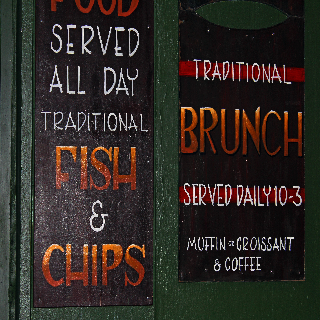 FOOD
SERVED
ALL DAY
TRADITIONAL
FISH
&
CHIPS
TRADITIONAL
BRUNCH
SERVED DAILY 10-3
MUFFIN OR CROISSANT
& COFFEE